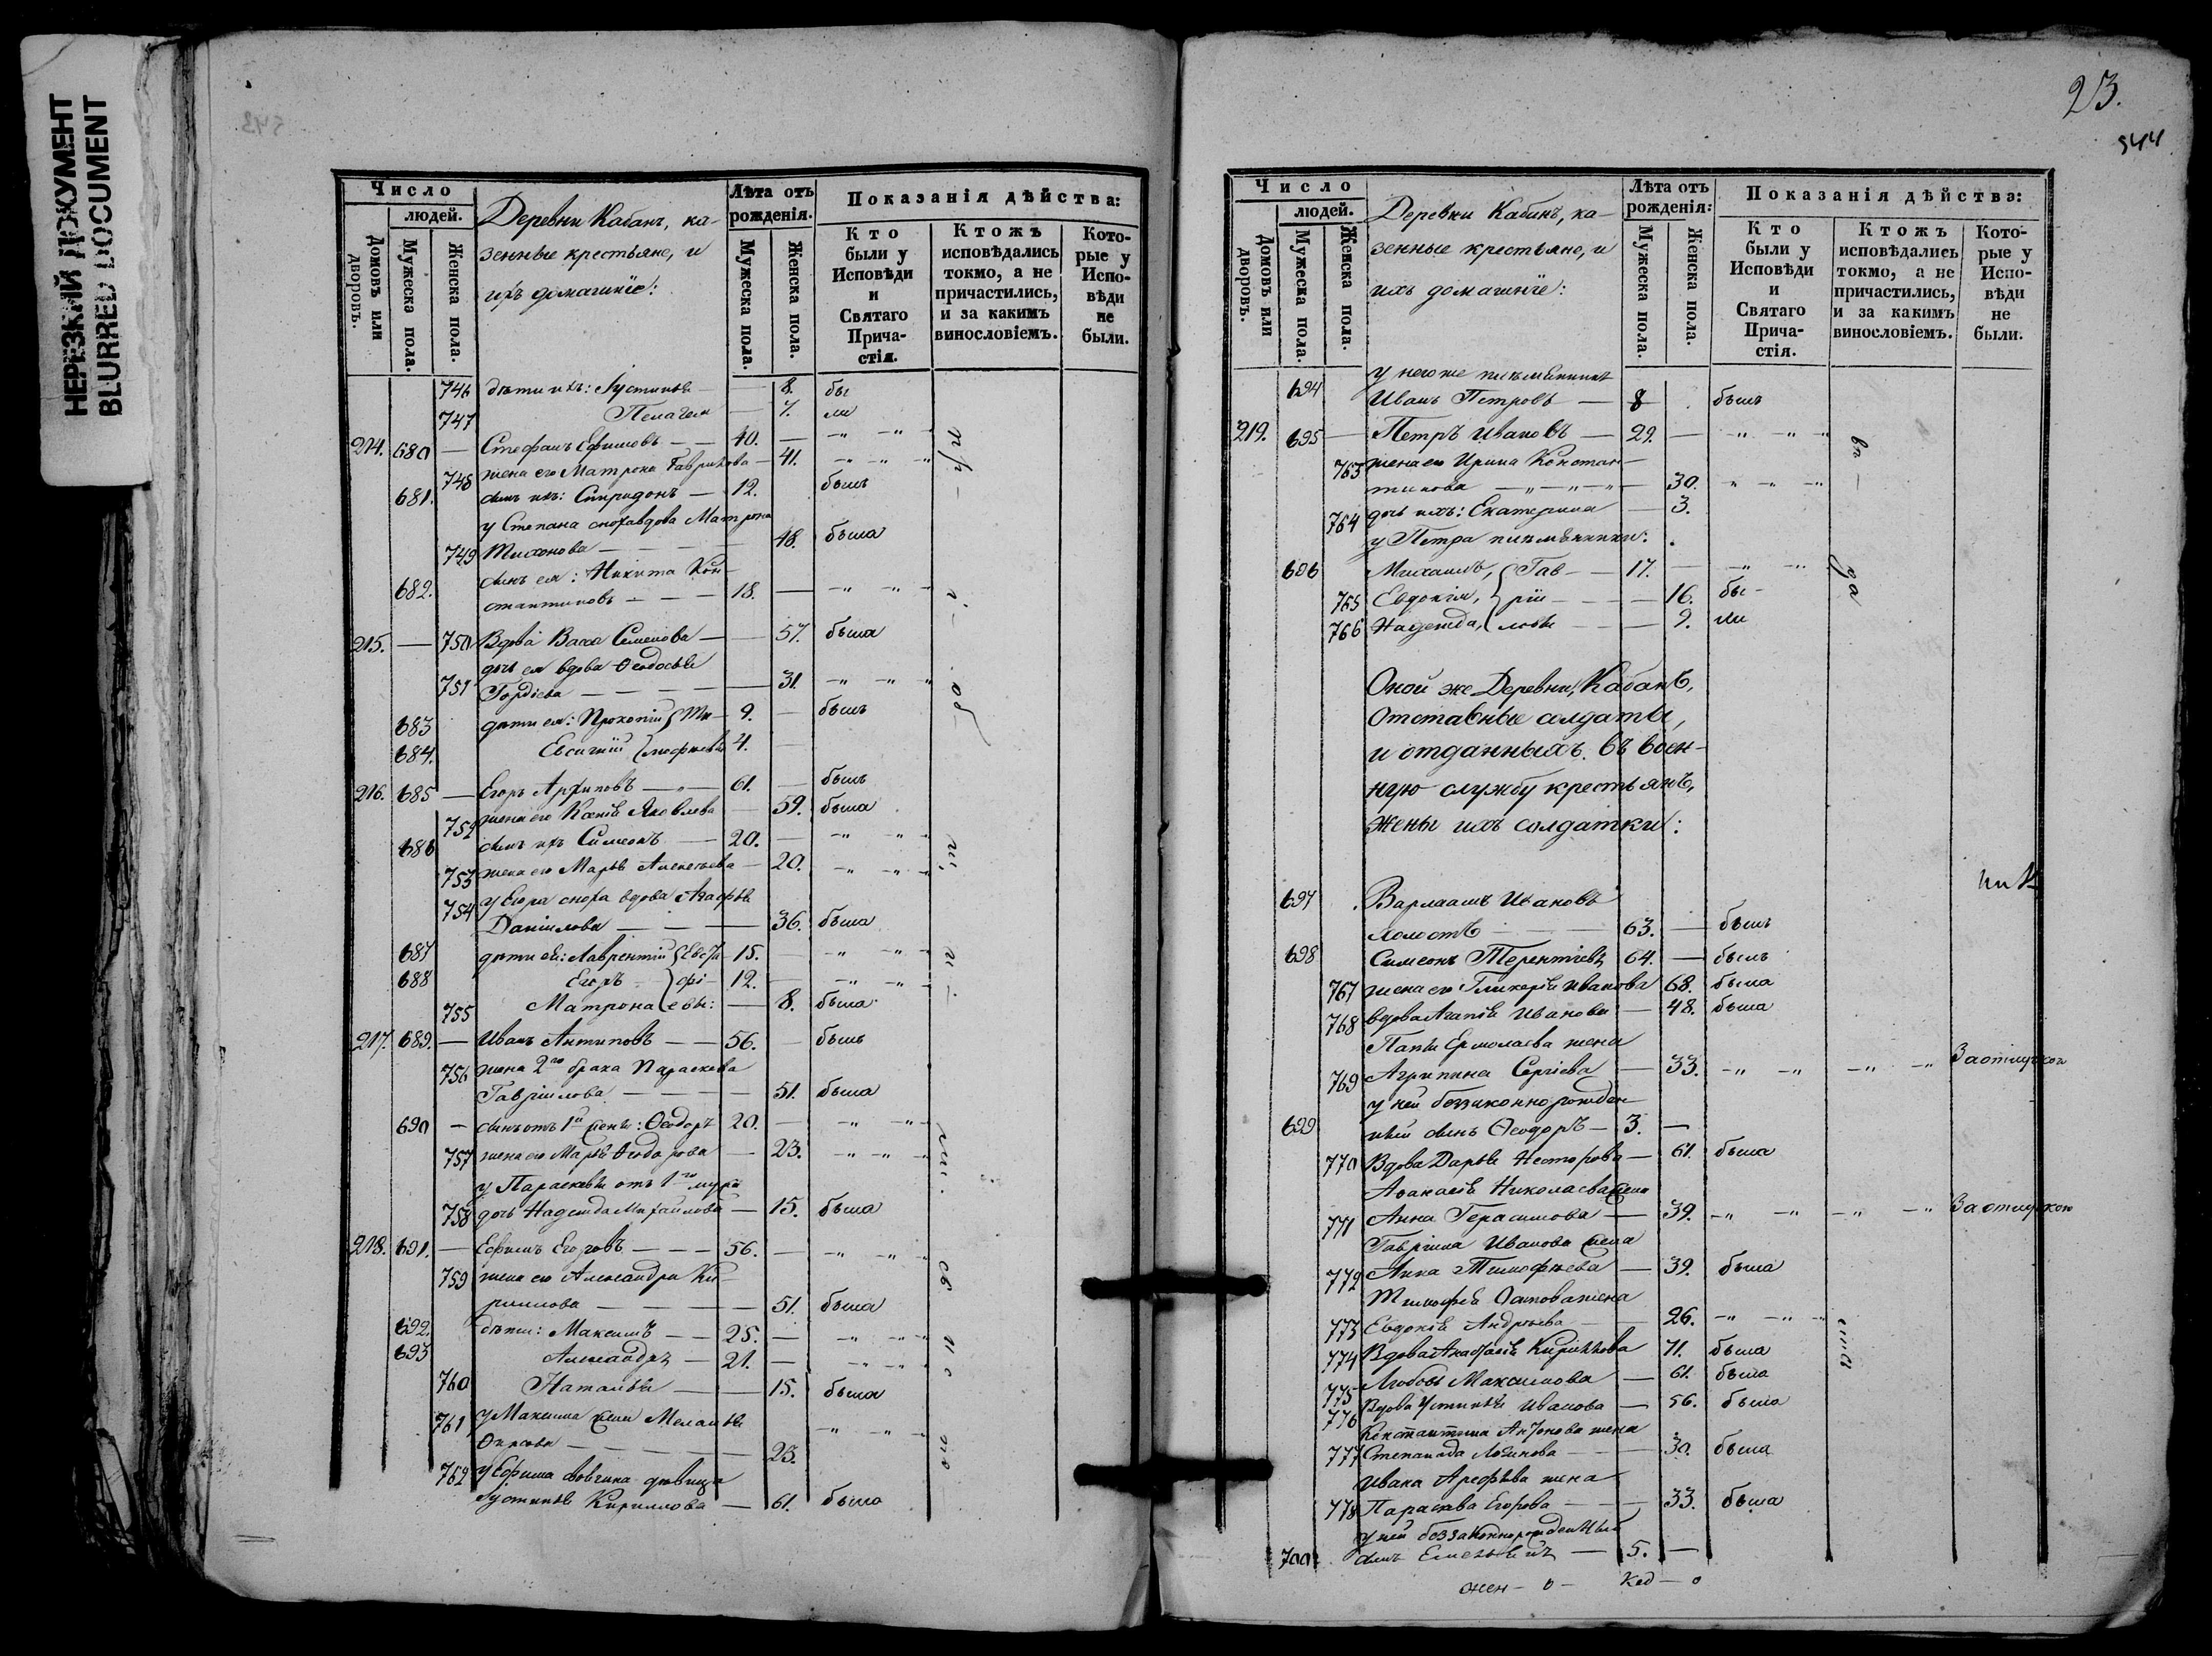 НЕРЕЗКИЙ ДОКУМЕНТ
BLURRED DOCUMENT
Число
людей.
Домовъ или дворовъ.
Мужеска пола.
Женска пола.
Деревни Кабанъ, ка-
зенные крестьяне, и
ихъ домашніе:
Лѣта отъ рожденія.
Мужеска пола.
Женска пола.
Показанія дѣйства:
Кто были у Исповѣди и Святаго Прича-стія.
Ктожъ исповѣдались токмо, а не причастились, и за какимъ винословіемъ.
Кото-рые у Испо-вѣди не были.
746 дѣти ихъ: Іустинія — 8. бы
747 Пелагея — 7. ли
214. 680 — Стефанъ Ефимовъ — — 40. — -„ -„ -„
748 жена его Матрона Гаврилова — 41. -„ -„ -„
681. сынъ ихъ: Спиридонъ — 12. былъ
у Степана сноха вдова Матрона
749 Тихонова — — — — 48. была
сынъ ея: Никита Кон-
682. стантиновъ — — — 18. — -„ -„ -„
215. — 750 Вдова Васса Семенова — — 57. была
дочь ея вдова Ѳеодосія
751 Гордіева — — — — 31. -„ -„ -„
683 дѣти ея: Прокопій { Ти- 9. — былъ
684. Евсигній { мофѣевы 4. —
216. 685 — Егоръ Архиповъ — „ — 61. — былъ
752 жена его Ксенія Яковлева — 59. была
686 сынъ ихъ Симеонъ — 20. — -„ -„ -„
753 жена его Марья Алексѣева — 20. -„ -„ -„
754 у Егора сноха вдова Агафья
Даниилова — — — 36. была
687 дѣти ей: Лаврентій { Евста- 15. — -„ -„
688 Егоръ { фі- 12. — -„ -„
755 Матрона { евы: — 8. была
217. 689. — Иванъ Антиповъ — — 56. — былъ
756 жена 2го брака Параскева
Гавріилова — — — — 51. была
690 — сынъ отъ 1й жены: Ѳеодоръ 20. — -„ -„
757 жена его Марья Ѳеодорова — 23. -„ -„ -„
у Параскевы отъ 1го мужа
758 дочь Надежда Михайлова — 15. была
218. 691. — Ефимъ Егоровъ — — — 56. — -„ -„ -„
759 жена его Александра Ки-
риллова — — — — 51. была
692. дѣти: Максимъ — — 25. — -„ -„ -„
693 Александръ — 21. — -„ -„ -„
760 Наталья — — 15. была
761 у Максима жена Меланья
— — — — 23. -„ -„ -„
762 у Ефима дѣвица
Іустинія Кириллова — 61. была
23.
544
Число
людей.
Домовъ или дворовъ.
Мужеска пола.
Женска пола.
Деревни Кабанъ, ка-
зенные крестьяне, и
ихъ домашніе:
Лѣта отъ рожденія:
Мужеска пола.
Женска пола.
Показанія дѣйства:
Кто были у Исповѣди и Святаго Прича-стія.
Ктожъ исповѣдались токмо, а не причастились, и за какимъ винословіемъ.
Кото-рые у Испо-вѣди не были.
у него же племянникъ
694 Иванъ Петровъ — 8 былъ
219. 695 — Петръ Ивановъ — 29. — -„ -„ -„
763 жена его Ирина Констан-
тинова — „ — „ — 30. -„ -„ -„
764 дочь ихъ: Екатерина — 3.
у Петра племянники:
696 Михаилъ, { Гав- — 17. — -„ -„
765 Евдокія, { рии- — — 16. бы-
766 Надежда, { ловы — — 9. ли
Оной же Деревни, Кабанъ,
Отставные салдаты,
и отданныхъ въ воен-
ную службу крестьянъ,
жены ихъ солдатки:
697 Варлаамъ Ивановъ
холостъ — — — 63. — былъ
698 Симеонъ Терентіевъ 64. — былъ
767 жена его Гликерія Иванова 68. была
768 вдова Агапія Иванова — 48. была
Ермолаева жена
769 Агрипина Сергіева — 33. -„ -„ -„ -„ За отлучкою
у ней беззаконнорожден-
699 ный сынъ Ѳеодоръ — 3. —
770 Вдова Дарья Несторова — 61. была
Аѳанасія Николаева жена
771 Анна Герасимова — 39. -„ -„ -„ -„ За отлучкою
Гавріила Иванова жена
772 Анна Тимофѣева — 39. была
Тимофея жена
773 Евдокія Андрѣева — 26. -„ -„ -„
774 Вдова Анастасія Кириллова 71. была
775 Любовь Максимова — 61. была
776 Вдова Устинія Иванова — 56. была
Константина Антонова жена
777 Степанида Логинова — 30. была
Ивана Арефьева жена
778 Параскева Егорова — — 33. была
у ней беззаконнорожденный
700 сынъ — 5. —